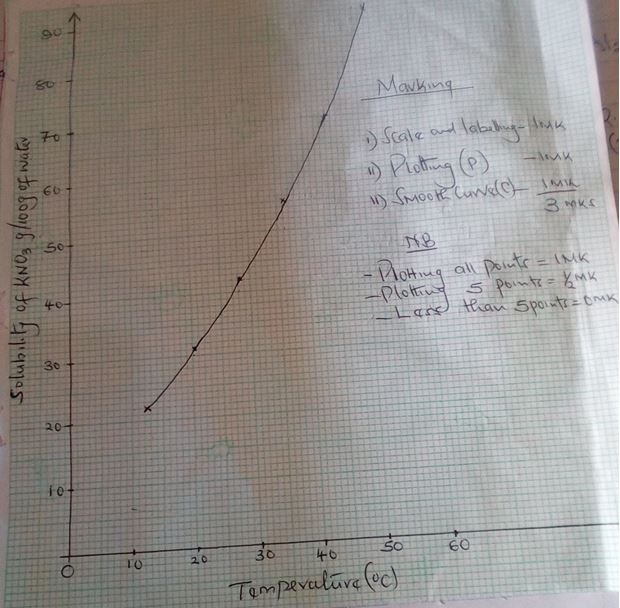 90
80
70
60
50
40
30
20
10
0
10
20
30
40
50
60
Solubility of KNO3 g/100g of water
Temperature (oC)
Marking
i) Scale and labelling - 1MK
ii) Plotting (P) - 1MK
iii) Smooth curve (C) - 1MK
3 mks
N.B
- Plotting all points = 1MK
- Plotting 5 points = ½ MK
- Less than 5 points = 0 MK